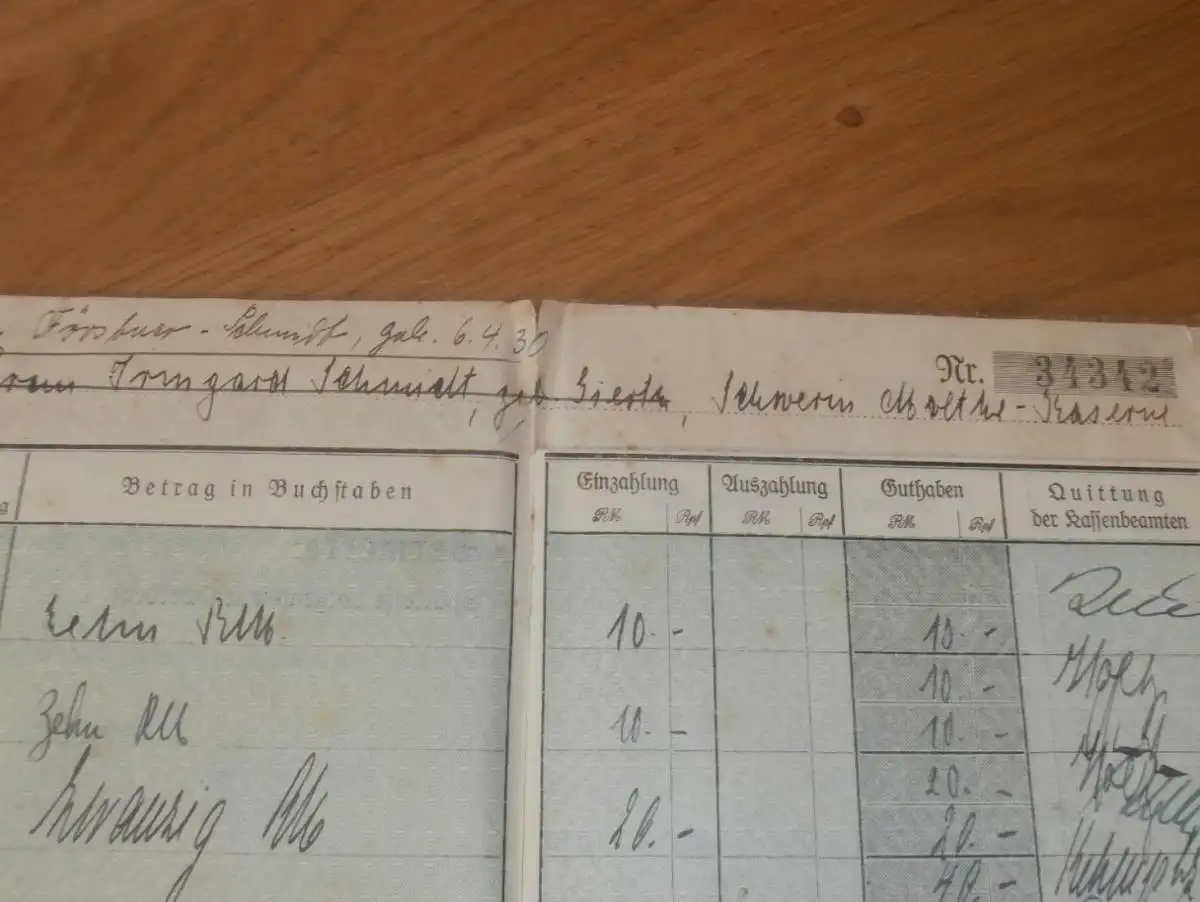 Schmidt, geb. 6.4.30
Nr. 34342
Irmgard Schmidt, geb. Schwerin Moltke-Kaserne
Betrag in Buchstaben
Einzahlung
RM Rpf
Auszahlung
RM Rpf
Guthaben
RM Rpf
Quittung
der Kassenbeamten
Zehn RM 10.- 10.-
10.-
Zehn RM 10.- 10.-
20.-
Zwanzig RM 20.- 20.-
40.-